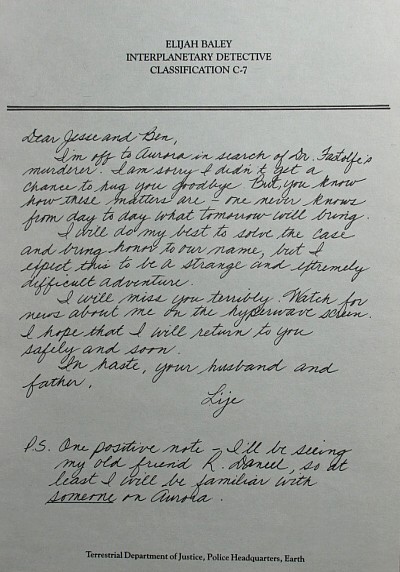 ELIJAH BALEY
INTERPLANETARY DETECTIVE
CLASSIFICATION C-7
Dear Jesse and Ben,
I'm off to Aurora in search of Dr. Fastolfe's
murderer. I am sorry I didn't get a
chance to hug you goodbye. But, you know
how these matters are - one never knows
from day to day what tomorrow will bring.
I will do my best to solve the case
and bring honor to our name, but I
expect this to be a strange and extremely
difficult adventure.
I will miss you terribly. Watch for
news about me on the hyperwave screen.
I hope that I will return to you
safely and soon.
In haste, your husband and
father,
Lije
P.S. One positive note - I'll be seeing
my old friend R. Daneel, so at
least I will be familiar with
someone on Aurora.
Terrestrial Department of Justice, Police Headquarters, Earth